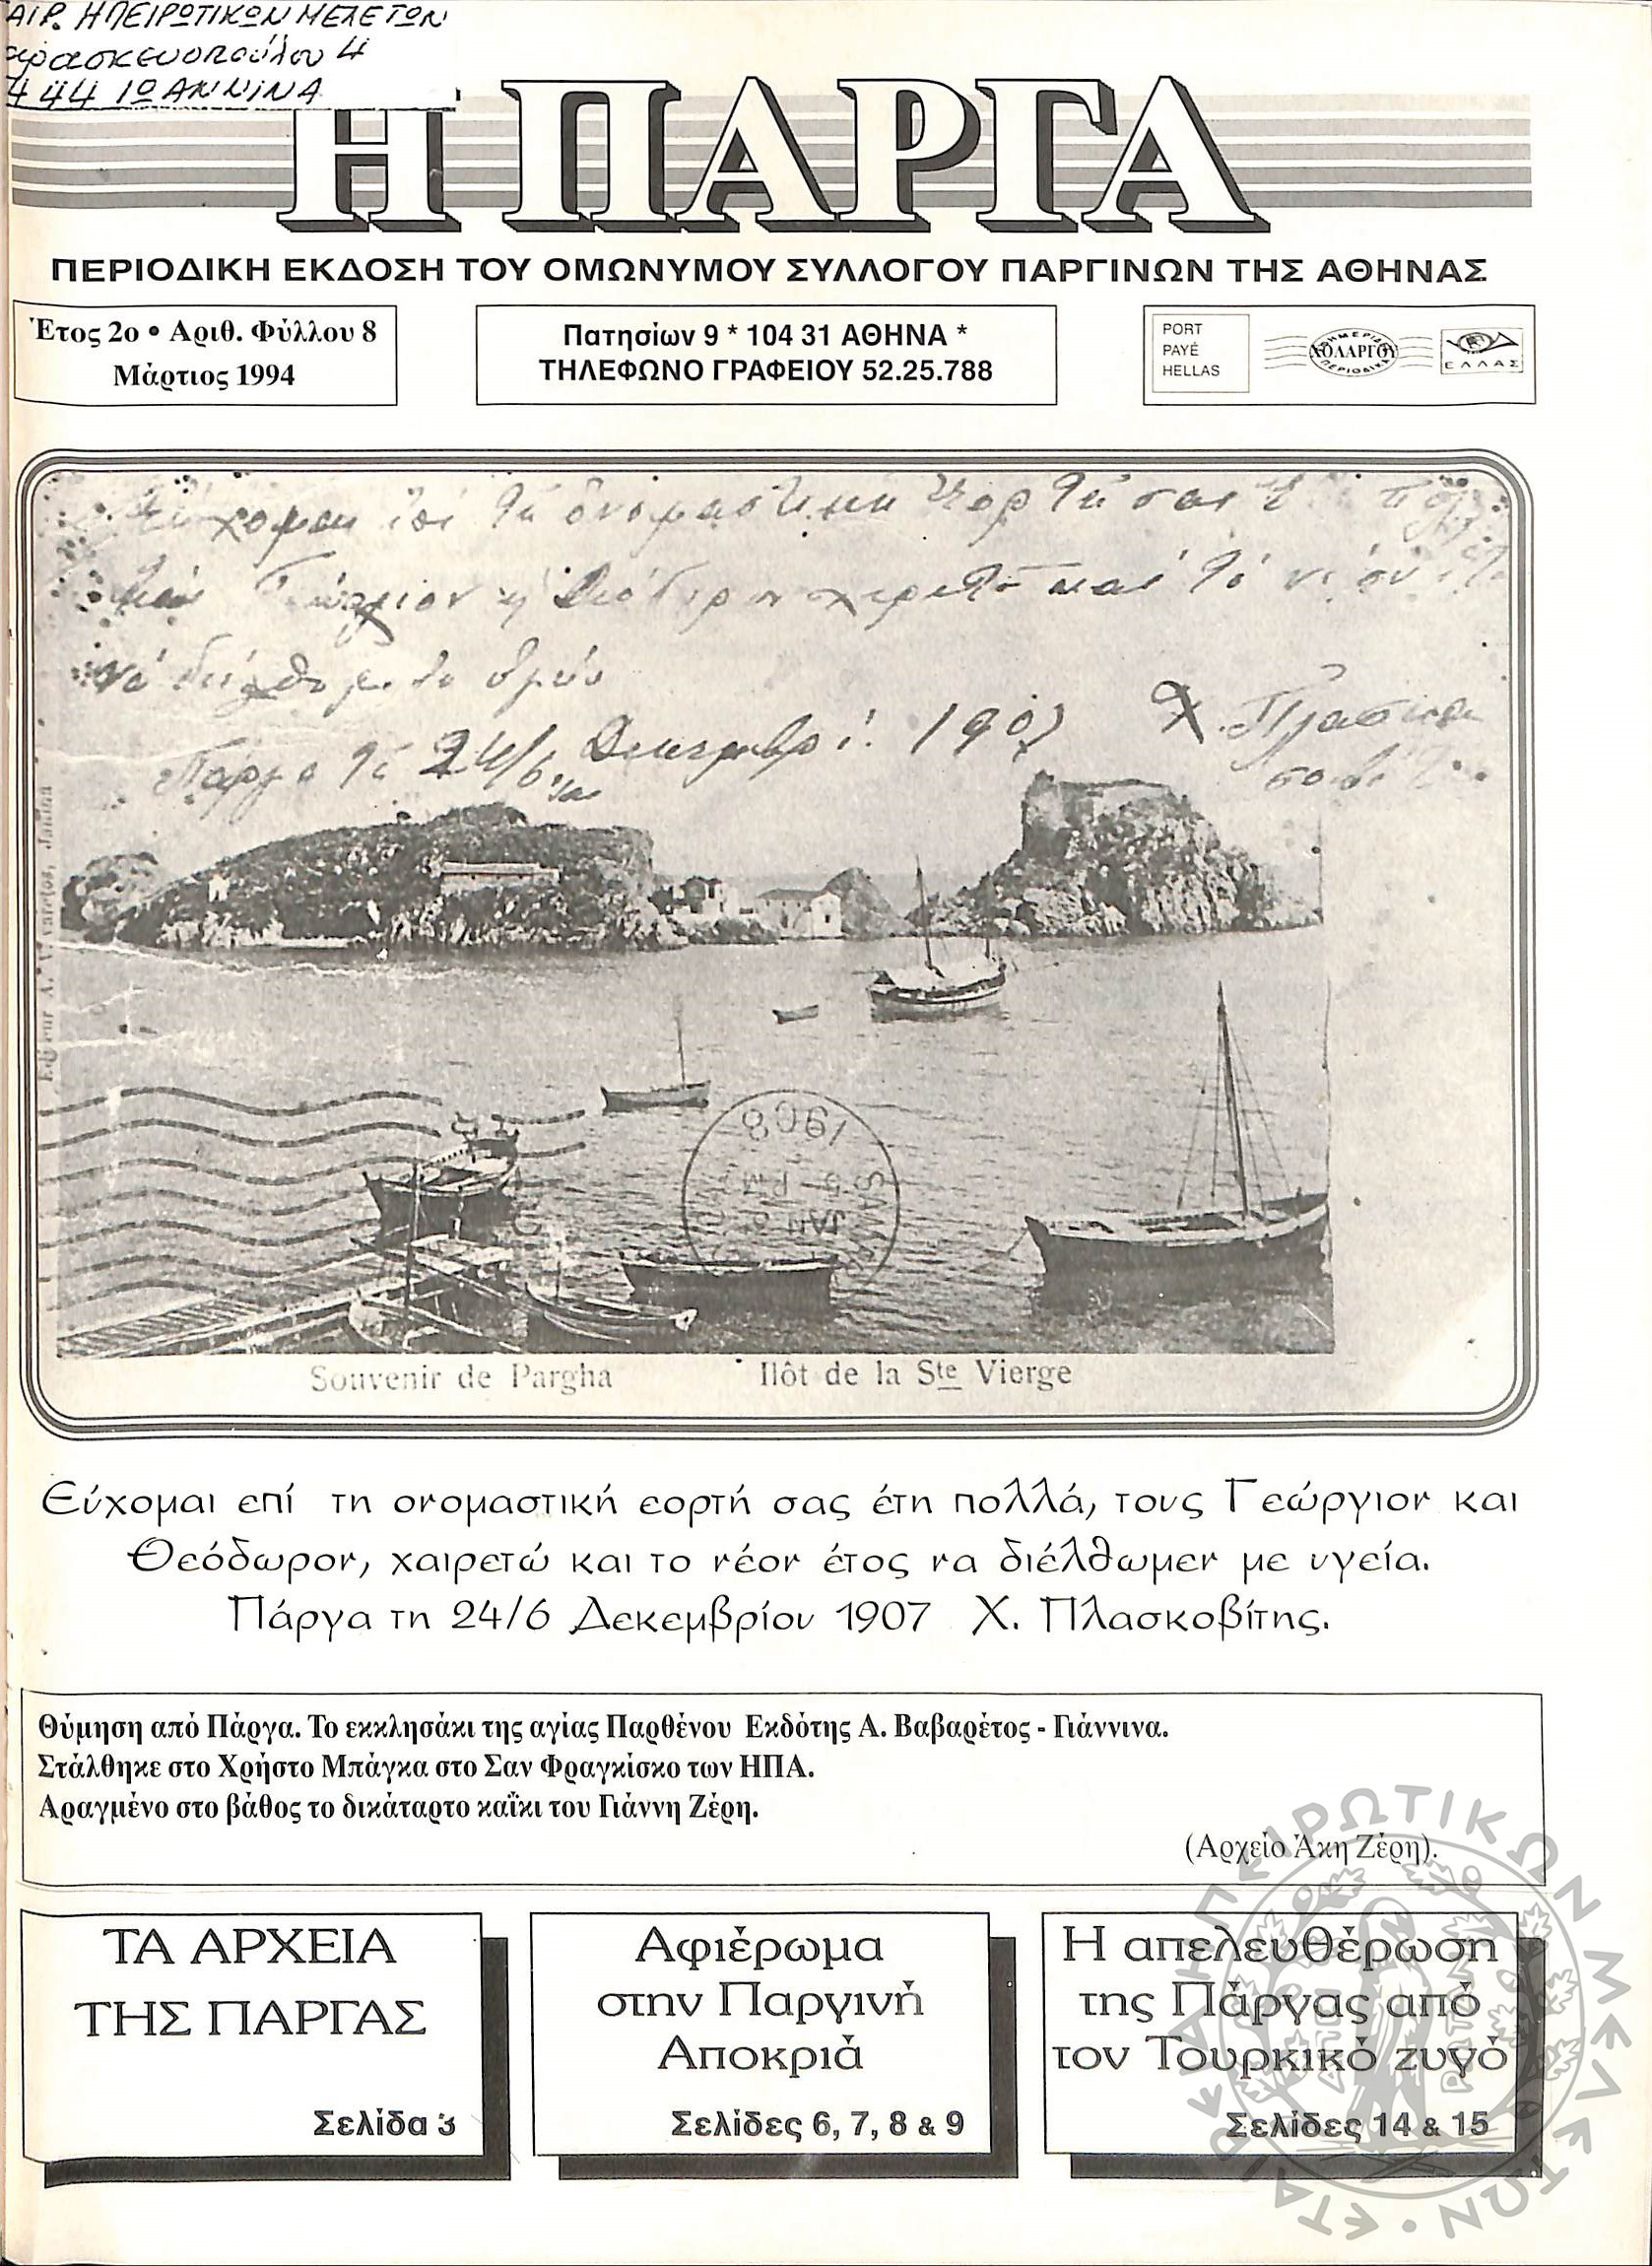 ΑΙΡ. ΗΠΕΙΡΩΤΙΚΩΝ ΜΕΛΕΤΩΝ
αρασκευοπούλου 4
444 ΙΩΑΝΝΙΝΑ
Η ΠΑΡΓΑ
ΠΕΡΙΟΔΙΚΗ ΕΚΔΟΣΗ ΤΟΥ ΟΜΩΝΥΜΟΥ ΣΥΛΛΟΓΟΥ ΠΑΡΓΙΝΩΝ ΤΗΣ ΑΘΗΝΑΣ
Έτος 2ο • Αριθ. Φύλλου 8
Μάρτιος 1994
Πατησίων 9 * 104 31 ΑΘΗΝΑ *
ΤΗΛΕΦΩΝΟ ΓΡΑΦΕΙΟΥ 52.25.788
PORT
PAYÉ
HELLAS
ΕΦΗΜΕΡΙΔΕΣ
ΧΟΛΑΡΓΟΥ
ΠΕΡΙΟΔΙΚΑ
ΕΛΛΑΣ
1907
1908
JAN
Souvenir de Pargha
Ilôt de la Ste Vierge
Εύχομαι επί τη ονομαστική εορτή σας έτη πολλά, τους Γεώργιον και
Θεόδωρον, χαιρετώ και το νέον έτος να διέλθωμεν με υγεία.
Πάργα τη 24/6 Δεκεμβρίου 1907 Χ. Πλασκοβίτης.
Θύμηση από Πάργα. Το εκκλησάκι της αγίας Παρθένου Εκδότης Α. Βαβαρέτος - Γιάννινα.
Στάλθηκε στο Χρήστο Μπάγκα στο Σαν Φραγκίσκο των ΗΠΑ.
Αραγμένο στο βάθος το δικάταρτο καΐκι του Γιάννη Ζέρη.
(Αρχείο Άκη Ζέρη).
ΤΑ ΑΡΧΕΙΑ
ΤΗΣ ΠΑΡΓΑΣ
Σελίδα 3
Αφιέρωμα
στην Παργινή
Αποκριά
Σελίδες 6, 7, 8 & 9
Η απελευθέρωση
της Πάργας από
τον Τουρκικό ζυγό
Σελίδες 14 & 15
ΕΤΑΙΡΕΙΑ ΗΠΕΙΡΩΤΙΚΩΝ ΜΕΛΕΤΩΝ